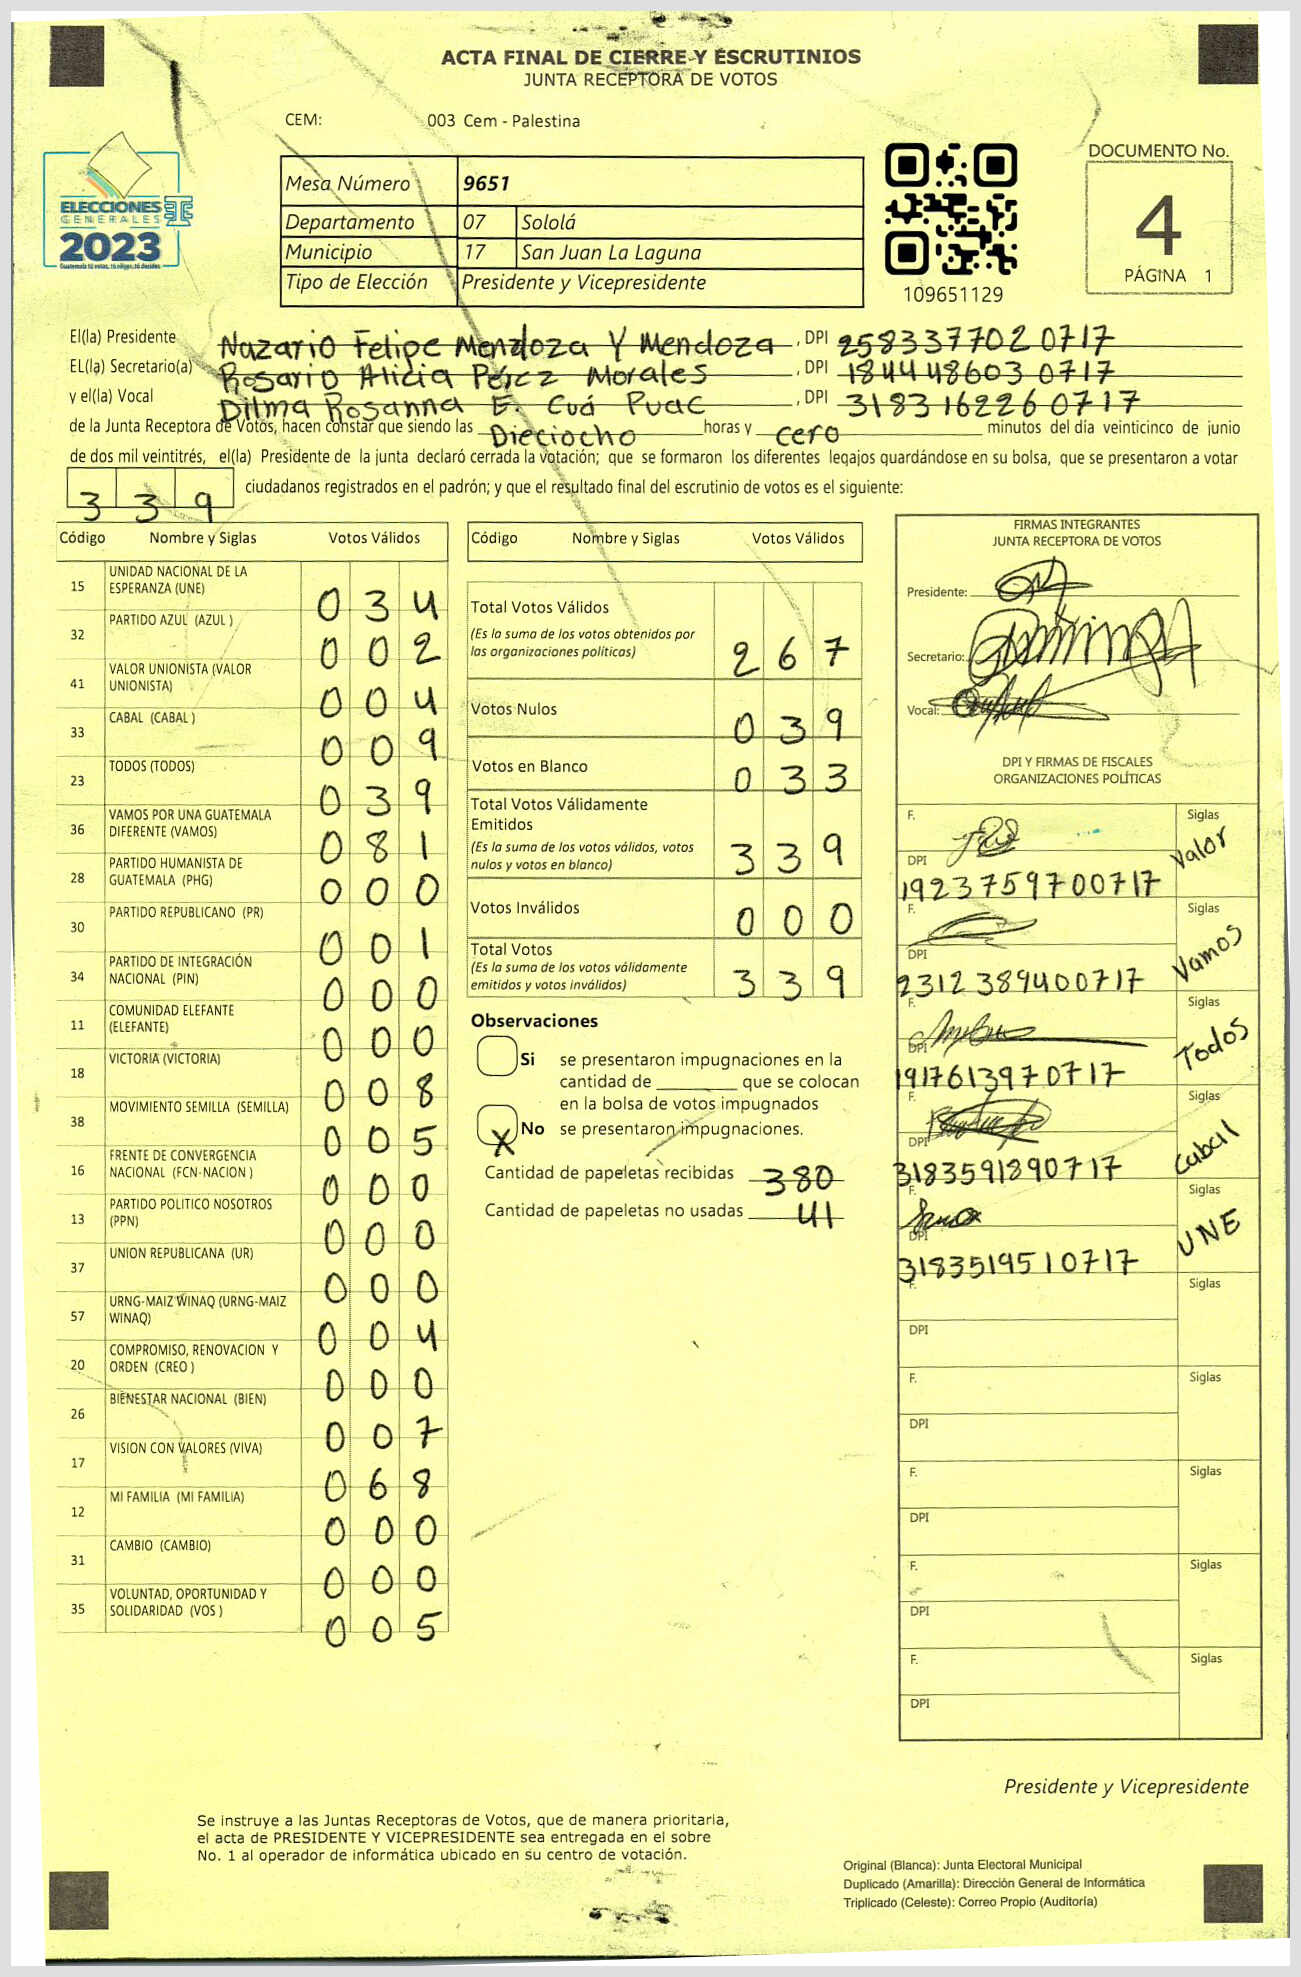 ACTA FINAL DE CIERRE Y ESCRUTINIOS
JUNTA RECEPTORA DE VOTOS
CEM: 003 Cem - Palestina
ELECCIONES
GENERALES
2023
Guatemala tú votas, tú eliges, tú decides.
TE
Mesa Número 9651
Departamento 07 Sololá
Municipio 17 San Juan La Laguna
Tipo de Elección Presidente y Vicepresidente
109651129
DOCUMENTO No.
4
PÁGINA 1
El(la) Presidente Nazario Felipe Mendoza Y Mendoza , DPI 2583377020717
EL(la) Secretario(a) Rosario Alicia Pérez Morales , DPI 1844486030717
y el(la) Vocal Dilma Rosanna E. Cuá Puac , DPI 3183162260717
de la Junta Receptora de Votos, hacen constar que siendo las Dieciocho horas y cero minutos del día veinticinco de junio
de dos mil veintitrés, el(la) Presidente de la junta declaró cerrada la votación; que se formaron los diferentes legajos guardándose en su bolsa, que se presentaron a votar
339 ciudadanos registrados en el padrón; y que el resultado final del escrutinio de votos es el siguiente:
Código Nombre y Siglas Votos Válidos
15 UNIDAD NACIONAL DE LA
ESPERANZA (UNE) 034
32 PARTIDO AZUL (AZUL ) 002
41 VALOR UNIONISTA (VALOR
UNIONISTA) 004
33 CABAL (CABAL ) 009
23 TODOS (TODOS) 039
36 VAMOS POR UNA GUATEMALA
DIFERENTE (VAMOS) 081
28 PARTIDO HUMANISTA DE
GUATEMALA (PHG) 000
30 PARTIDO REPUBLICANO (PR) 001
34 PARTIDO DE INTEGRACIÓN
NACIONAL (PIN) 000
11 COMUNIDAD ELEFANTE
(ELEFANTE) 000
18 VICTORIA (VICTORIA) 008
38 MOVIMIENTO SEMILLA (SEMILLA) 005
16 FRENTE DE CONVERGENCIA
NACIONAL (FCN-NACION ) 000
13 PARTIDO POLITICO NOSOTROS
(PPN) 000
37 UNION REPUBLICANA (UR) 000
57 URNG-MAIZ WINAQ (URNG-MAIZ
WINAQ) 004
20 COMPROMISO, RENOVACION Y
ORDEN (CREO ) 000
26 BIENESTAR NACIONAL (BIEN) 007
17 VISION CON VALORES (VIVA) 068
12 MI FAMILIA (MI FAMILIA) 000
31 CAMBIO (CAMBIO) 000
35 VOLUNTAD, OPORTUNIDAD Y
SOLIDARIDAD (VOS ) 005
Código Nombre y Siglas Votos Válidos
Total Votos Válidos
(Es la suma de los votos obtenidos por
las organizaciones políticas) 267
Votos Nulos 039
Votos en Blanco 033
Total Votos Válidamente
Emitidos
(Es la suma de los votos válidos, votos
nulos y votos en blanco) 339
Votos Inválidos 000
Total Votos
(Es la suma de los votos válidamente
emitidos y votos inválidos) 339
Observaciones
Si se presentaron impugnaciones en la
cantidad de ________ que se colocan
en la bolsa de votos impugnados
X No se presentaron impugnaciones.
Cantidad de papeletas recibidas 380
Cantidad de papeletas no usadas 41
FIRMAS INTEGRANTES
JUNTA RECEPTORA DE VOTOS
Presidente:
Secretario:
Vocal:
DPI Y FIRMAS DE FISCALES
ORGANIZACIONES POLÍTICAS
F. Siglas
DPI Valor
1923759700717
F. Siglas
DPI Vamos
2312389400717
F. Siglas
DPI Todos
1917613970717
F. Siglas
DPI Cabal
3183591890717
F. Siglas
DPI UNE
3183519510717
F. Siglas
DPI
F. Siglas
DPI
F. Siglas
DPI
F. Siglas
DPI
F. Siglas
DPI
Presidente y Vicepresidente
Se instruye a las Juntas Receptoras de Votos, que de manera prioritaria,
el acta de PRESIDENTE Y VICEPRESIDENTE sea entregada en el sobre
No. 1 al operador de informática ubicado en su centro de votación.
Original (Blanca): Junta Electoral Municipal
Duplicado (Amarilla): Dirección General de Informática
Triplicado (Celeste): Correo Propio (Auditoría)